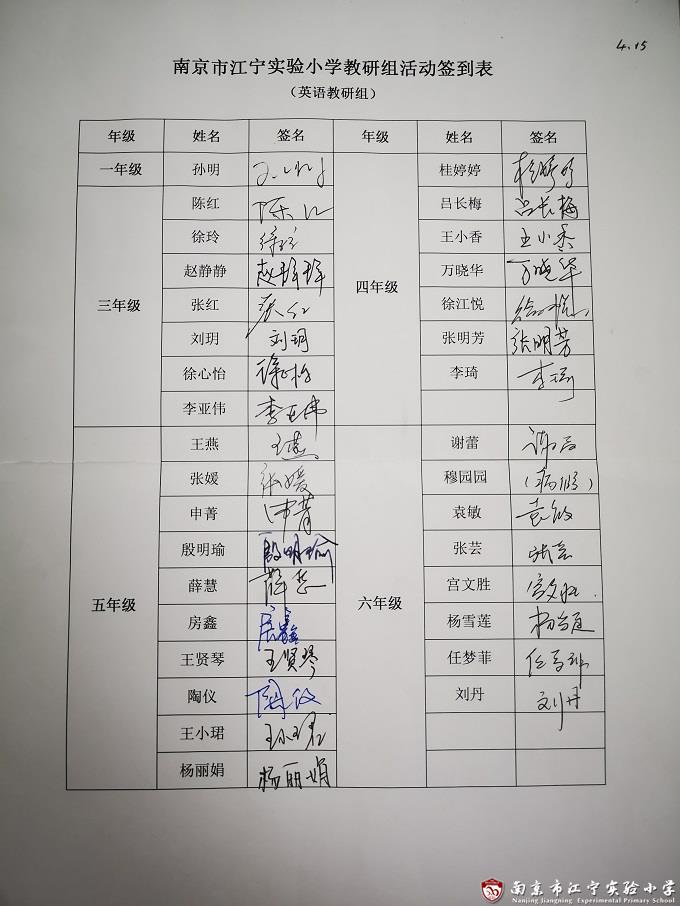 4.15
南京市江宁实验小学教研组活动签到表
（英语教研组）
年级 姓名 签名 年级 姓名 签名
一年级 孙明 四年级 桂婷婷 桂婷婷
三年级 陈红 陈红 吕长梅 吕长梅
徐玲 徐玲 王小香 王小香
赵静静 赵静静 万晓华 万晓华
张红 张红 徐江悦
刘玥 刘玥 张明芳 张明芳
徐心怡 徐心怡 李琦 李琦
李亚伟 李亚伟
五年级 王燕 王燕 六年级 谢蕾
张媛 张媛 穆园园 （病假）
申菁 申菁 袁敏 袁敏
殷明瑜 殷明瑜 张芸 张芸
薛慧 薛慧 宫文胜 宫文胜
房鑫 房鑫 杨雪莲
王贤琴 王贤琴 任梦菲
陶仪 陶仪 刘丹 刘丹
王小珺 王小珺
杨丽娟 杨丽娟
南京市江宁实验小学
Nanjing Jiangning Experimental Primary School